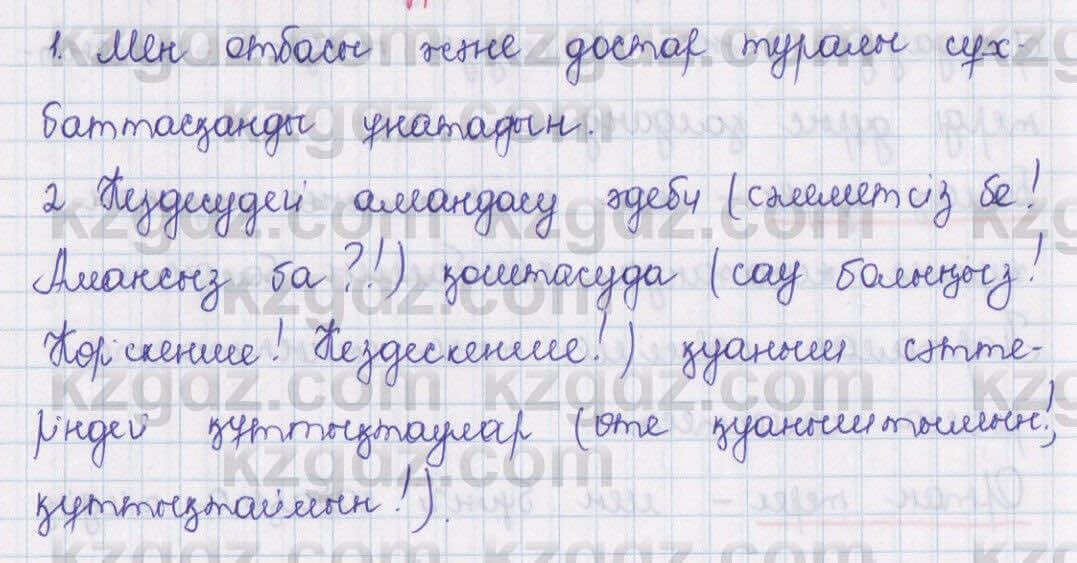 1. Мен отбасы және достар туралы сұх-
баттасқанды ұнатадын.
2 Кездесудегі амандасу әдеби (сәлеметсіз бе!
Амансыз ба?!) қоштасуда (сау болыңыз!
Көріскенше! Кездескенше!) қуаныш сәтте-
ріндегі құттықтаулар (өте қуаныштымын!,
құттықтаймын!).
kzgdz.com